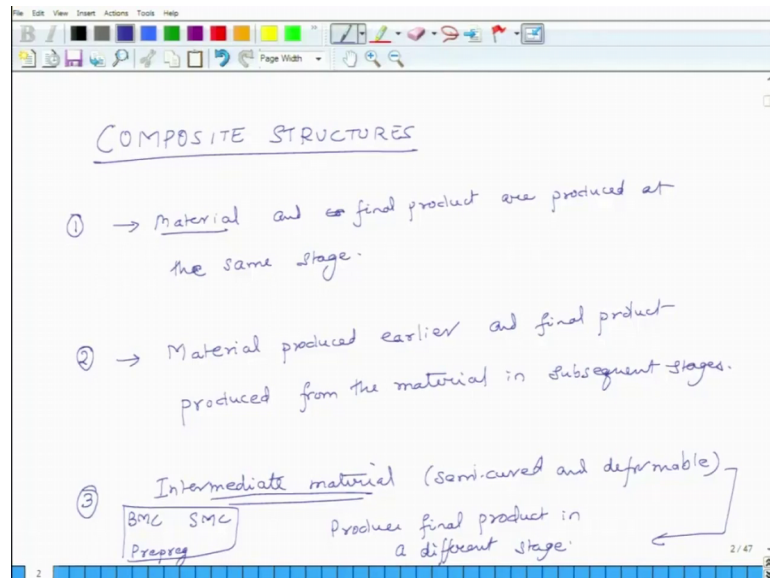 File Edit View Insert Actions Tools Help
B I
Page Width
COMPOSITE STRUCTURES
① → Material and final product are produced at
the same stage.
② → Material produced earlier and final prduct
produced from the material in subsequent stages.
③ Intermediate material (semi-cured and deformable)
BMC SMC
Prepreg
Produce final product in
a different stage.
2/47
2